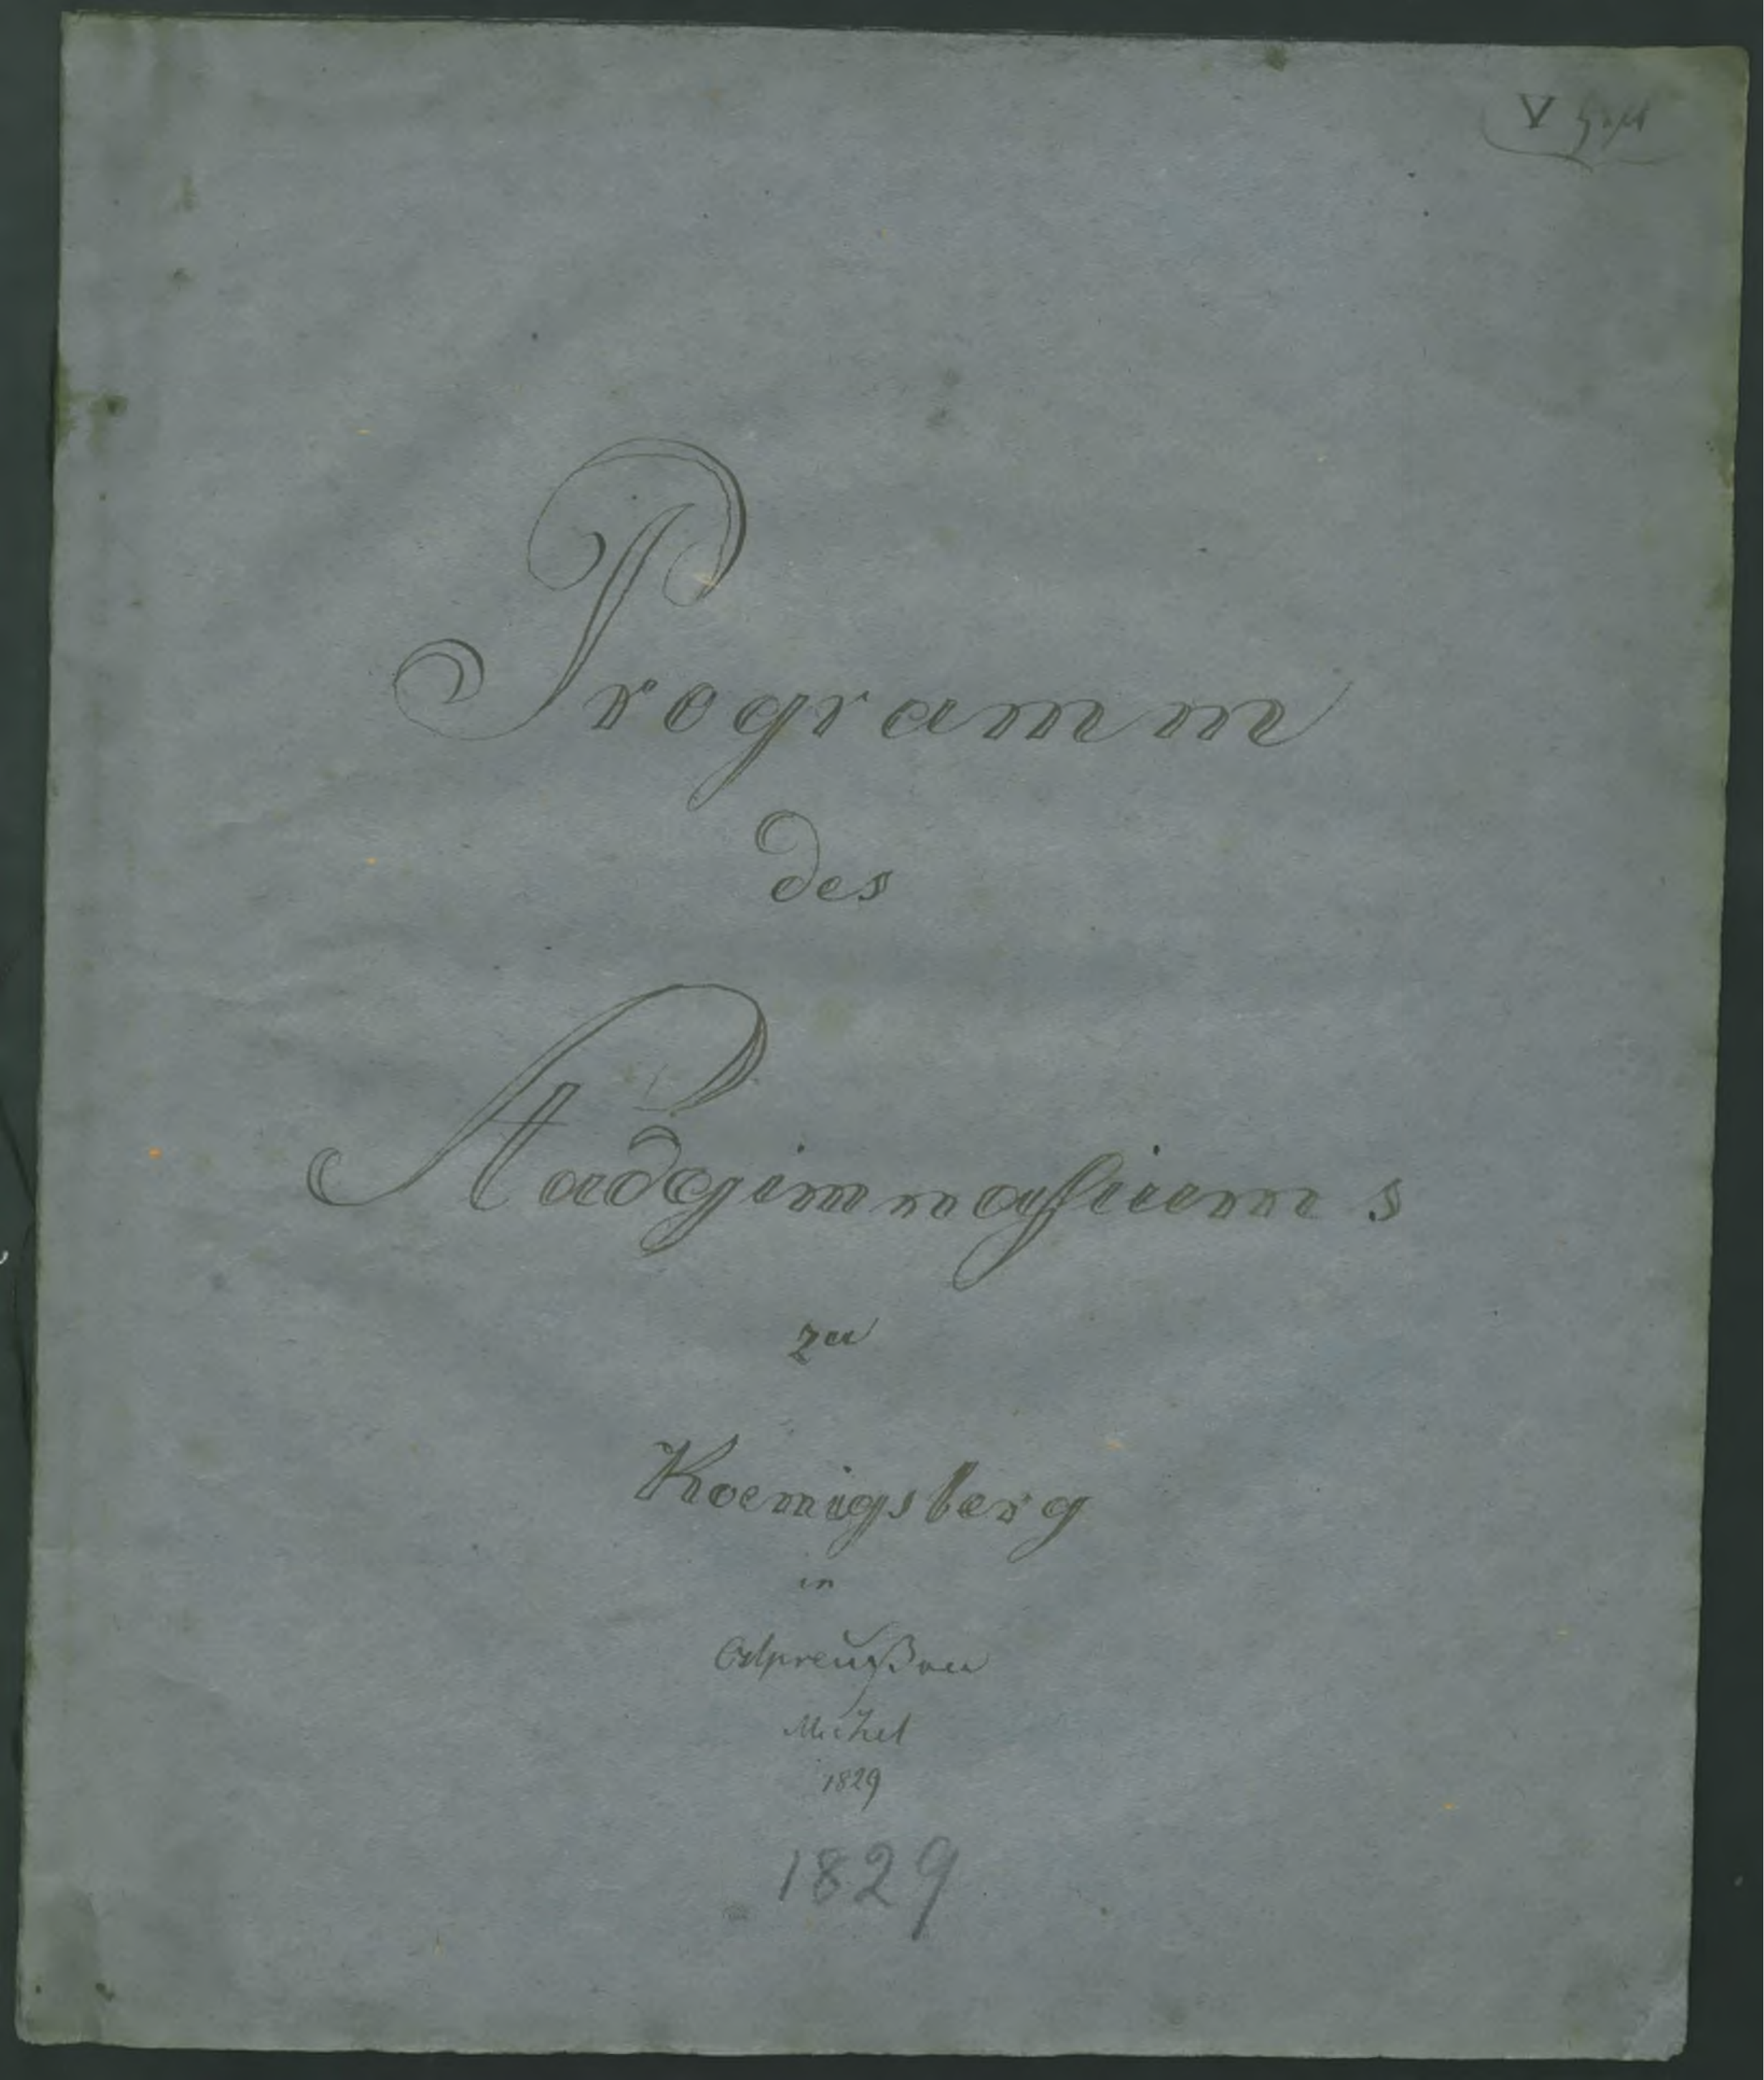 V Heft
Programm
des
Stadtgimnasiums
zu
Koenigsberg
in
Ostpreußen
Michel
1829
1829